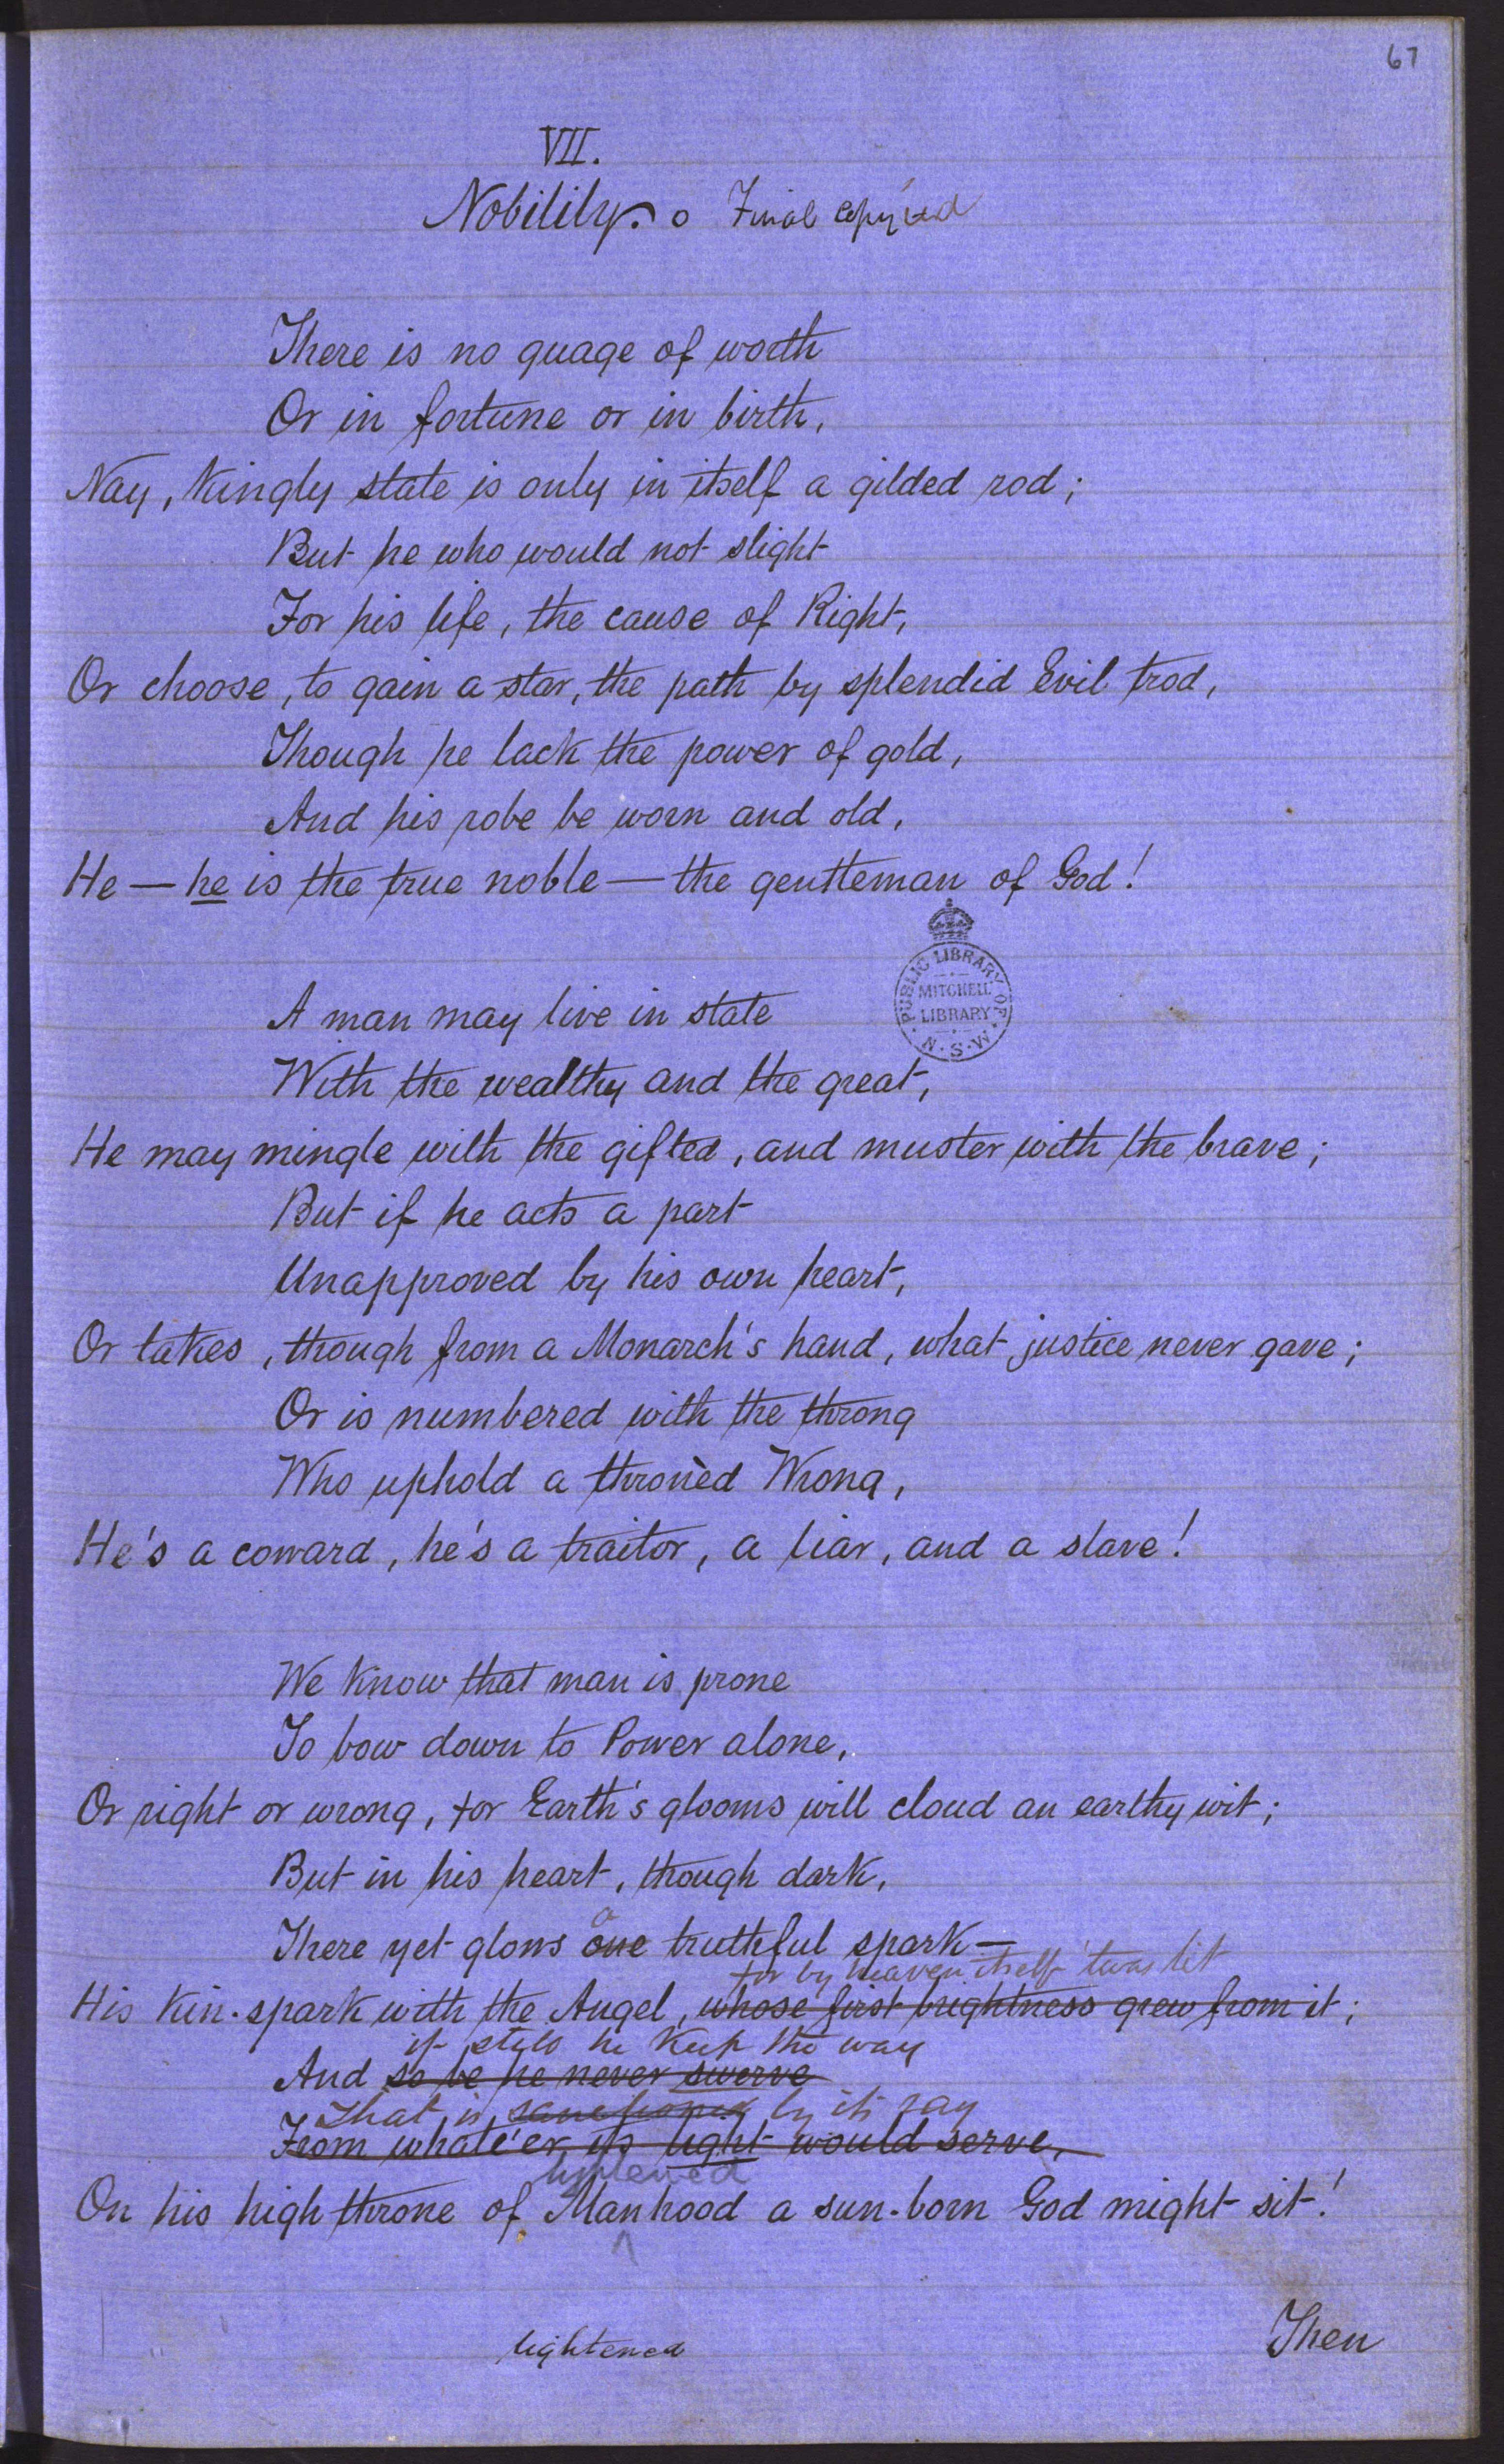 67
VII.
Nobility. o Final copy'ied
There is no guage of worth
Or in fortune or in birth,
Nay, Kingly state is only in itself a gilded rod;
But he who would not slight
For his life, the cause of Right,
Or choose, to gain a star, the path by splendid Evil trod,
Though he lack the power of gold,
And his robe be worn and old,
He — he is the true noble — the gentleman of God!
PUBLIC LIBRARY OF N.S.W.
MITCHELL LIBRARY
A man may live in state
With the wealthy and the great,
He may mingle with the gifted, and muster with the brave;
But if he acts a part
Unapproved by his own heart,
Or takes, though from a Monarch's hand, what justice never gave;
Or is numbered with the throng
Who uphold a thronèd Wrong,
He's a coward, he's a traitor, a liar, and a slave!
We Know that man is prone
To bow down to Power alone,
Or right or wrong, for Earth's glooms will cloud an earthy wit;
But in his heart, though dark,
a
There yet glows one truthful spark —
for by heaven itself 'twas lit
His Kin-spark with the Angel, whose first brightness grew from it;
if still he Keep the way
And so be he never swerve
That is by its ray
From whate'er its light would serve,
On his high throne of Manhood a sun-born God might sit!
lightened
Then